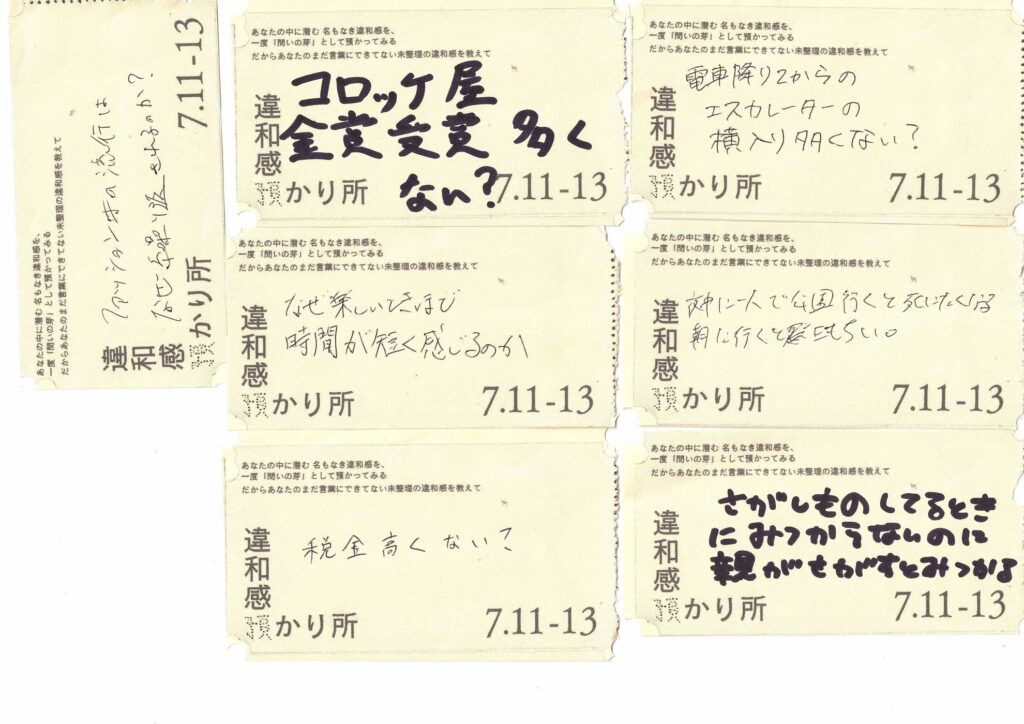 あなたの中に潜む 名もなき違和感を、
一度「問いの芽」として預かってみる
だからあなたのまだ言葉にできてない未整理の違和感を教えて
ファッションの流行は
なぜ繰り返されるのか?
違和感
預かり所 7.11-13
あなたの中に潜む 名もなき違和感を、
一度「問いの芽」として預かってみる
だからあなたのまだ言葉にできてない未整理の違和感を教えて
コロッケ屋
金賞受賞 多く
ない?
違和感
預かり所 7.11-13
あなたの中に潜む 名もなき違和感を、
一度「問いの芽」として預かってみる
だからあなたのまだ言葉にできてない未整理の違和感を教えて
電車降りてからの
エスカレーターの
横入り多くない?
違和感
預かり所 7.11-13
あなたの中に潜む 名もなき違和感を、
一度「問いの芽」として預かってみる
だからあなたのまだ言葉にできてない未整理の違和感を教えて
なぜ楽しいときほど
時間が短く感じるのか
違和感
預かり所 7.11-13
あなたの中に潜む 名もなき違和感を、
一度「問いの芽」として預かってみる
だからあなたのまだ言葉にできてない未整理の違和感を教えて
に一人で公園行くと死にたくなる
朝に行くと
違和感
預かり所 7.11-13
あなたの中に潜む 名もなき違和感を、
一度「問いの芽」として預かってみる
だからあなたのまだ言葉にできてない未整理の違和感を教えて
税金高くない?
違和感
預かり所 7.11-13
あなたの中に潜む 名もなき違和感を、
一度「問いの芽」として預かってみる
だからあなたのまだ言葉にできてない未整理の違和感を教えて
さがしものしてるとき
にみつからないのに
親がさがすとみつかる
違和感
預かり所 7.11-13